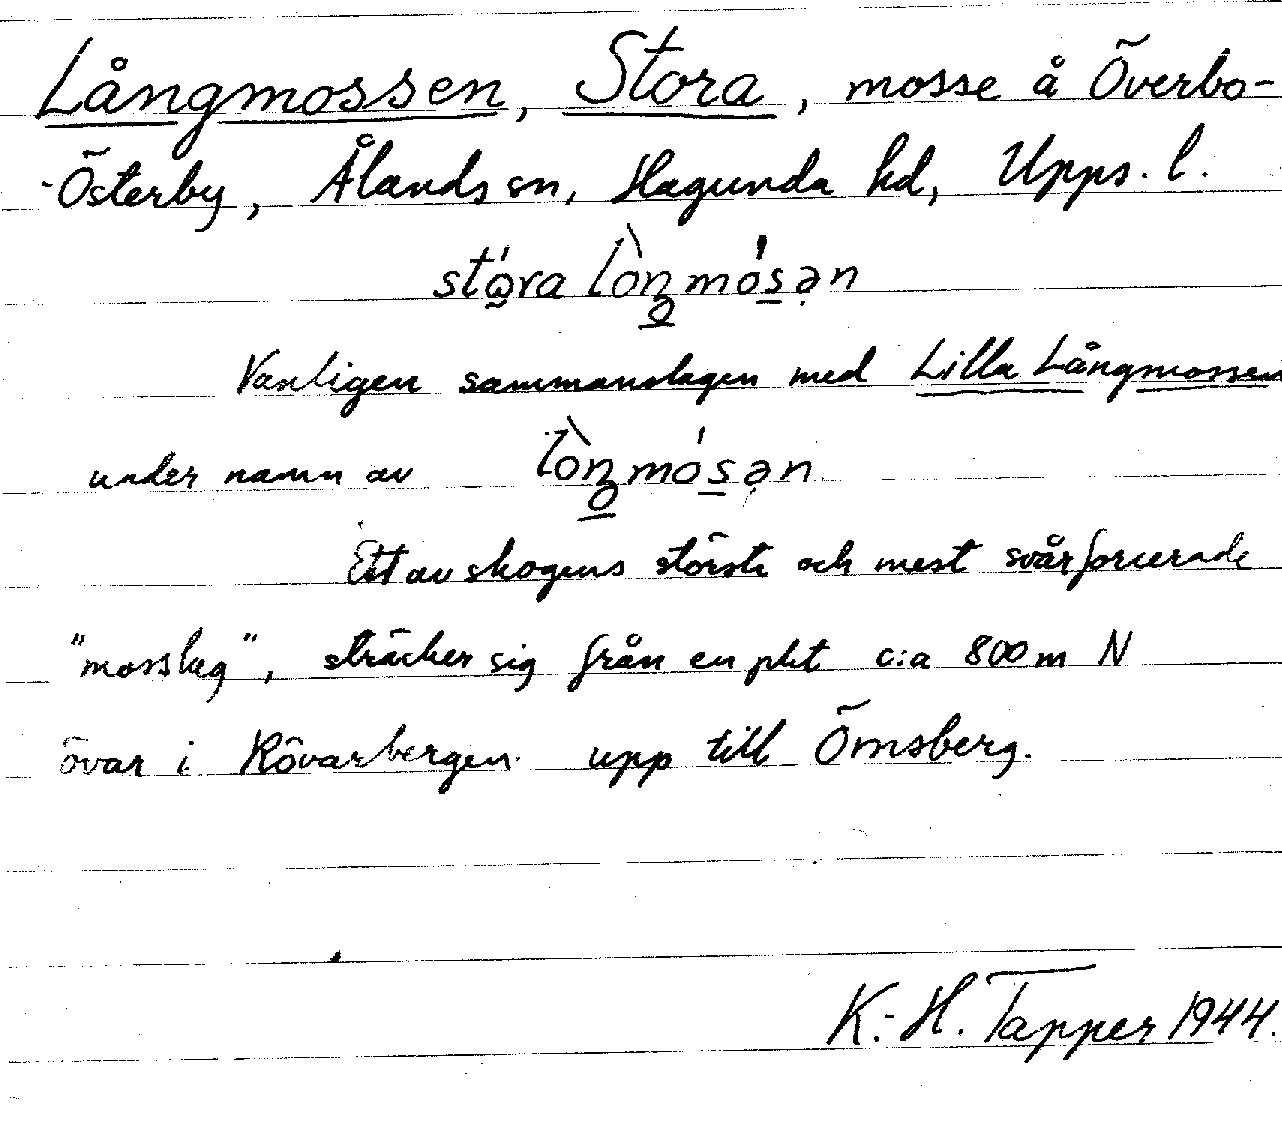 Långmossen, Stora, mosse å Överbo-
-Österby, Ålands sn, Hagunda hd, Upps. l.
stó̰ra lòŋmós̲ən
Vanligen sammanslagen med Lilla Långmossen
under namn av lòŋmós̲ən
Ett av skogens största och mest svårforcerade
"mosslag", sträcker sig från en pkt c:a 800 m N
övar i Rövarbergen upp till Ömsberg.
K.-H. Tapper 1944.